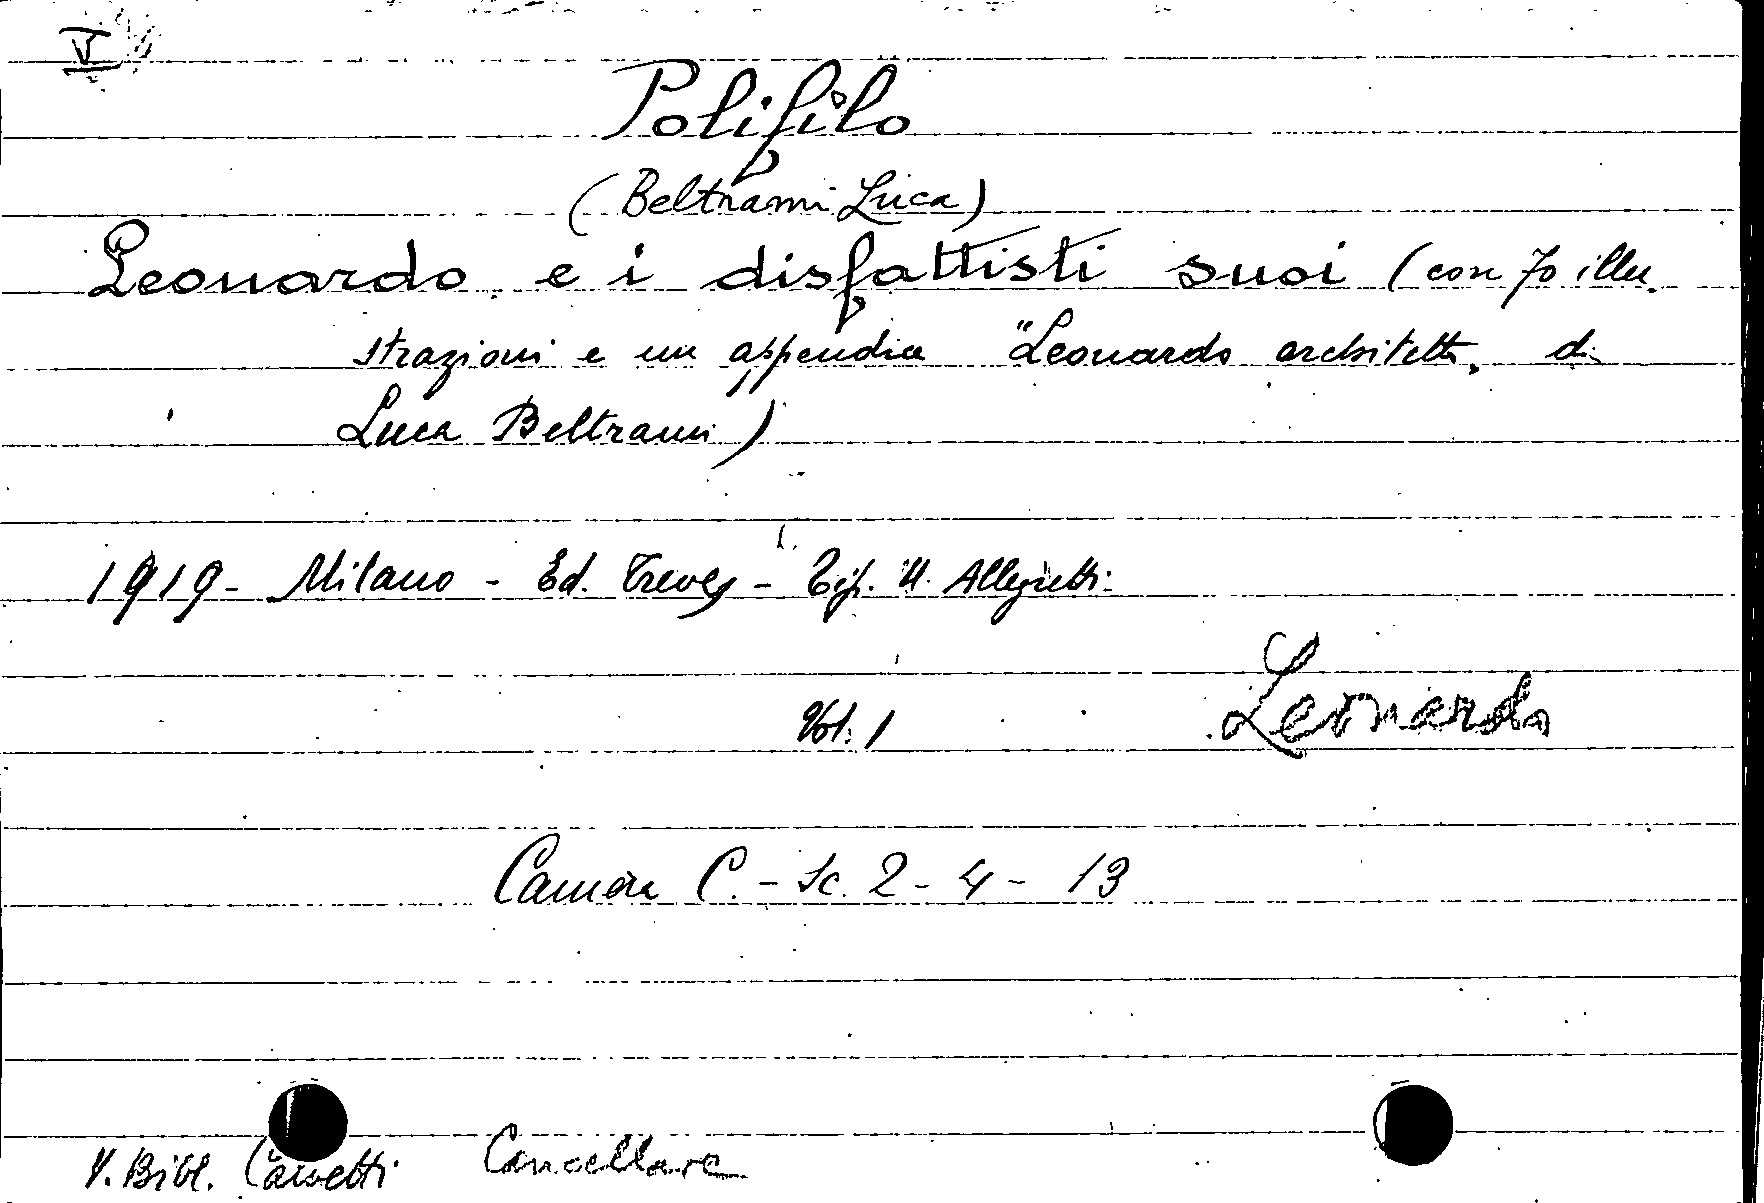 V
Polifilo
(Beltrami Luca)
Leonardo e i disfattisti suoi (con 70 illu.
strazioni e un appendice "Leonardo architetto„ di
Luca Beltrami)
1919 - Milano - Ed. Treves - Tip. U. Allegretti.
Vol. 1
Leonardo
Camera C. - Sc. 2 - 4 - 13
V. Bibl. Cancellare